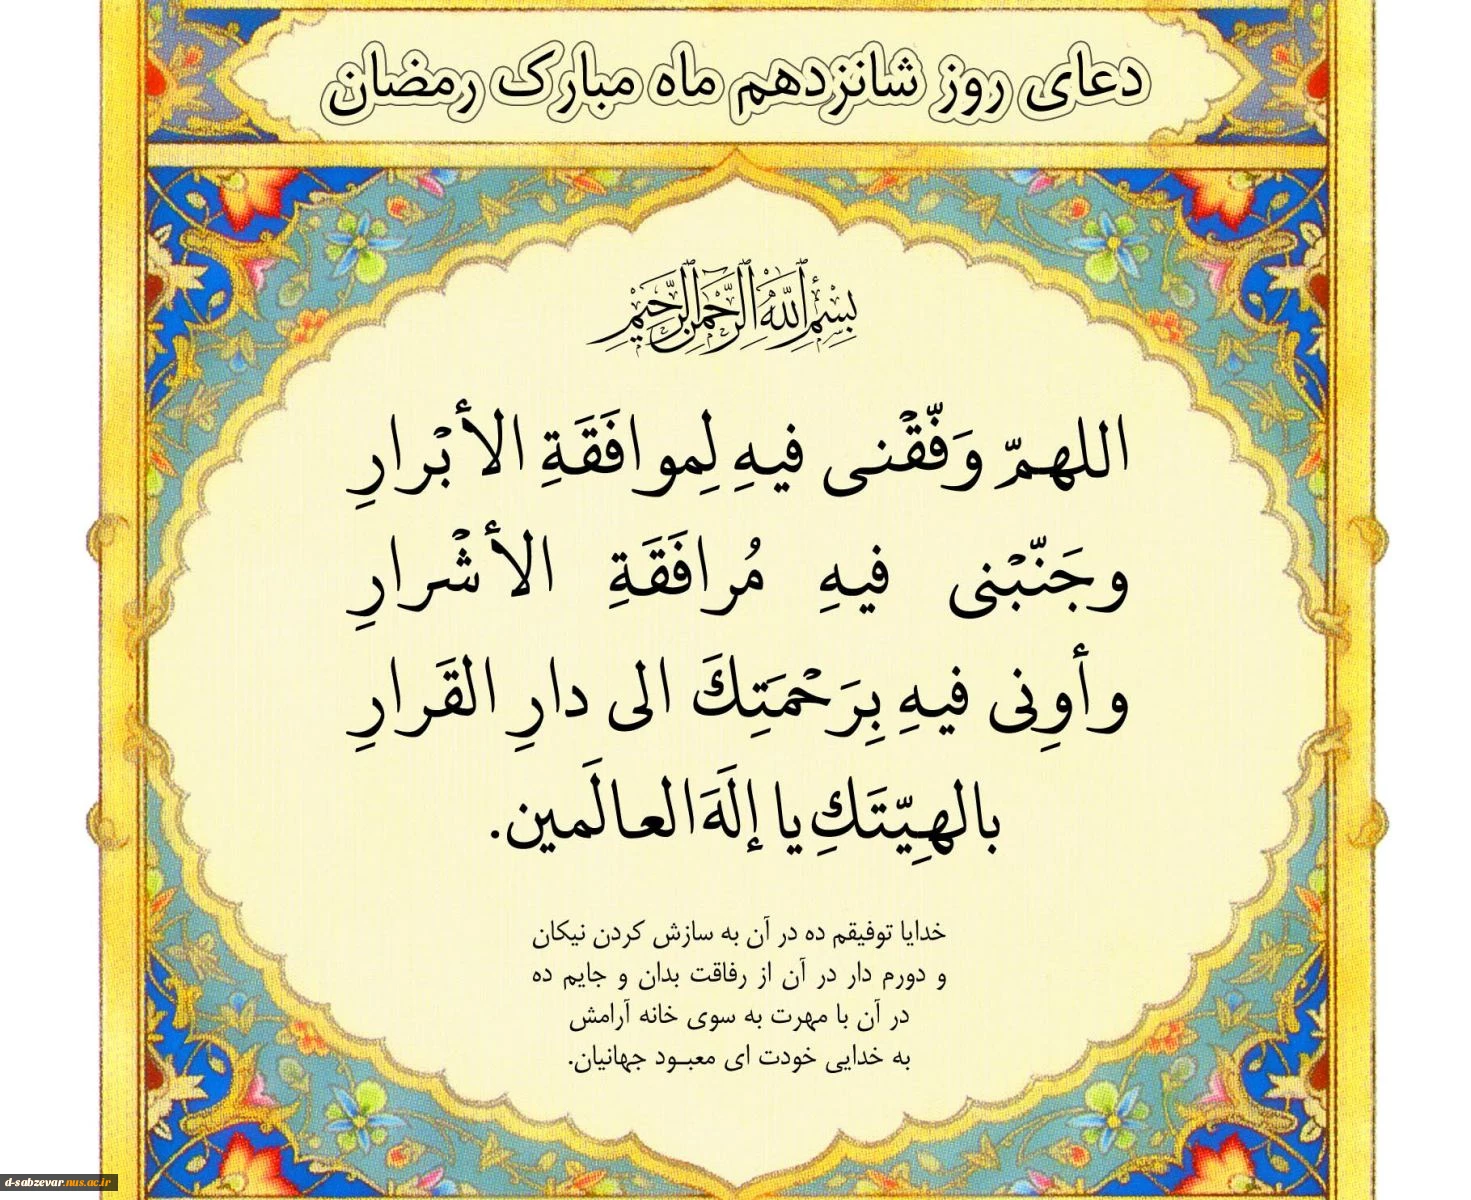 دعای روز شانزدهم ماه مبارک رمضان
بِسْمِ اللَّهِ الرَّحْمَنِ الرَّحِيمِ
اللهمّ وَفّقْنی فیهِ لِموافَقَةِ الأبْرارِ
وجَنّبْنی فیهِ مُرافَقَةِ الأشْرارِ
وأوِنی فیهِ بِرَحْمَتِكَ الی دارِ القَرارِ
بالهِیّتَكِ یا إلَهَ العالَمین.
خدایا توفیقم ده در آن به سازش کردن نیکان
و دورم دار در آن از رفاقت بدان و جایم ده
در آن با مهرت به سوی خانه آرامش
به خدایی خودت ای معبود جهانیان.
d-sabzevar.nus.ac.ir